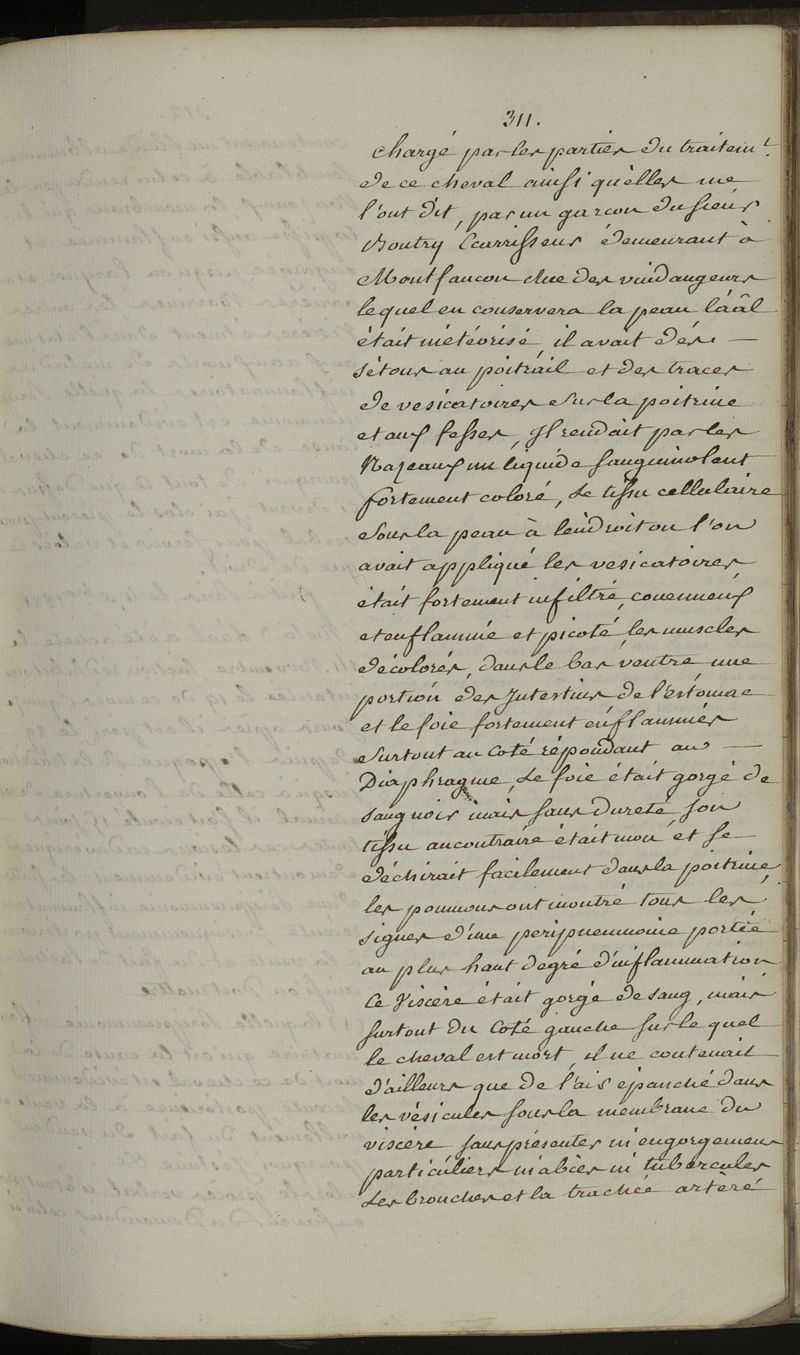 311.
chargé par les parties du traitemt.
de ce cheval ainsi qu'elles me
l'ont dit, par un garçon du sieur
Boutry Ecarrisseur demeurant à
Montfaucon Rue des vuidangeurs
lequel en conservera la peau
était météorisé, il avait dès. —
sétons au poitrail et des traces
de vesicatoires sur la poitrine
et aux fesses, Il rendait par les
Nazeaux un liquide sanguinolent
fortement coloré, Le tissu cellulaire
sous la peau à lendroit ou l'on
avait appliqué les vesicatoires
était fortement infiltré, couenneux
et enflammé et picoté, les muscles
décolorés, dans le bas ventre une
portion des Intestins de l'estomac
et le foie fortement enflammés
surtout au coté répondant au —
Diaphragme, Le foie était gorgé de
sang noir mais sans dureté, son
tissu aucontraire était mou et se
déchirait facilement dans la poitrine,
les poumons ont montré tous les
signes d'une peripneumonie portée
au plus haut degré d'inflammation
Ce Viscère était gorgé de sang, mais
surtout du coté gauche sur le quel
le cheval est mort, il ne contenait
d'ailleurs que de l'air épanché dans
les vésicules sous la membrane du
viscère sans présenter ni engorgemens
particuliers ni abcès ni tubercules
Les bronches et la trachée artère